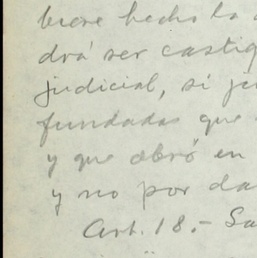 biere hecho la
drá ser castig
judicial, si ju
fundadas que
y que obró en
y no por da
Art. 18.- Sa